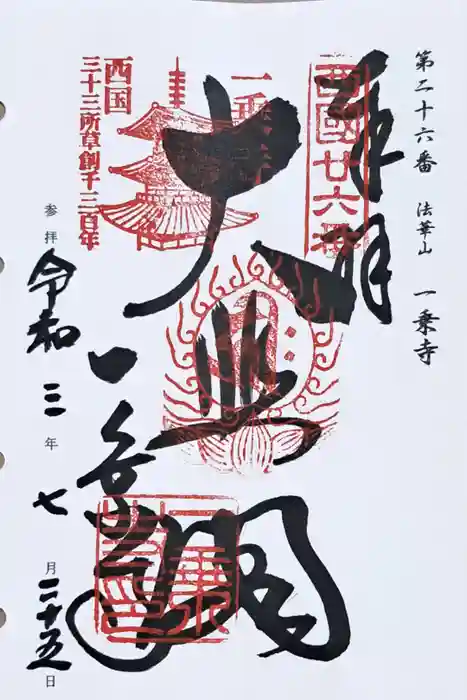 第二十六番 法華山 一乗寺
奉拝
西國廿六番
大悲閣
一乗寺
西国
三十三所草創千三百年
参拝 令和三年七月二十五日